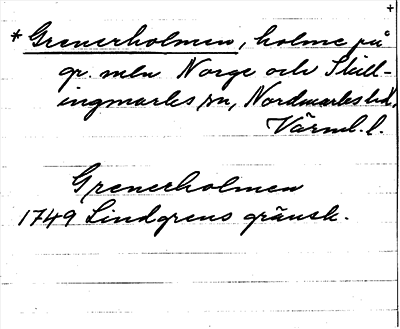 +
* Grenerholmen, holme på
gr. mln Norge och Skill-
ingmarks sn, Nordmarks hd,
Värml. l.
Grenerholmen
1749 Lindgrens gränsk.